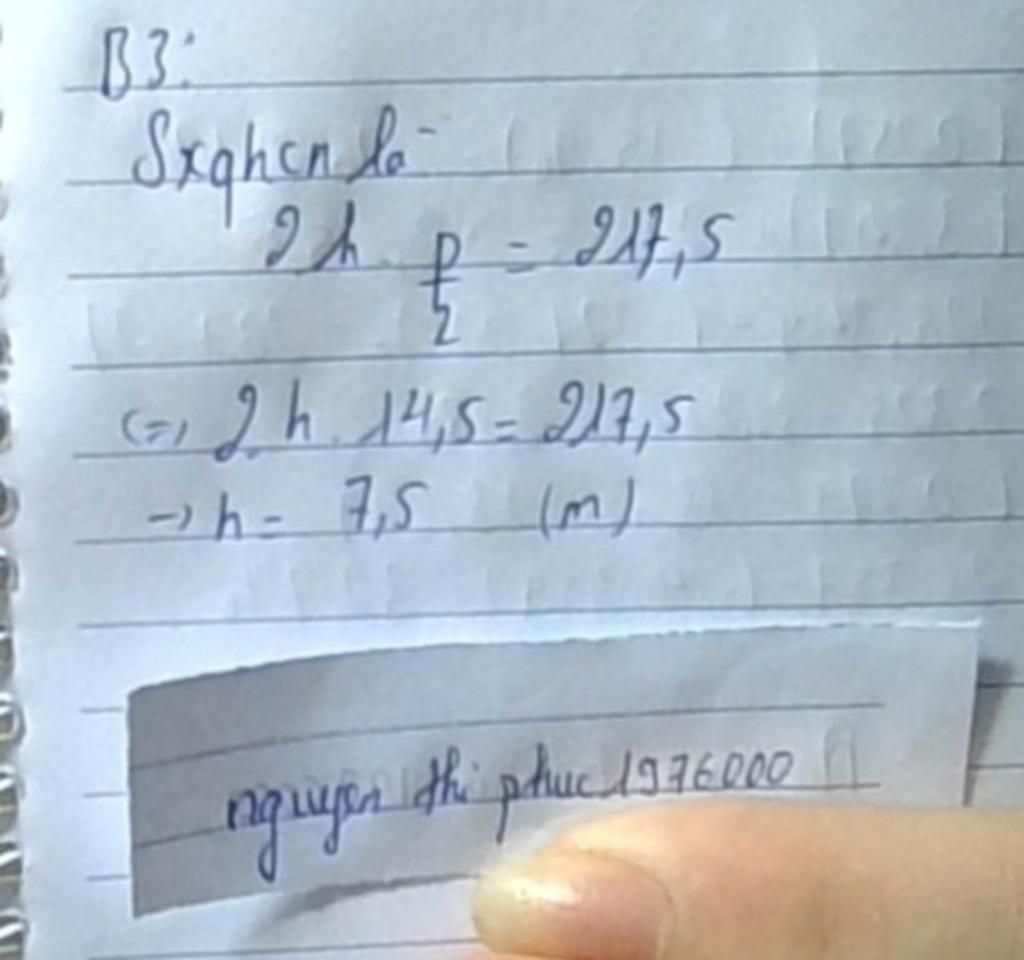 B3:
Sxqhcn là
2h. p/2 = 217,5
<=> 2.h. 14,5 = 217,5
-> h = 7,5 (m)
nguyen thi phuc 1976000